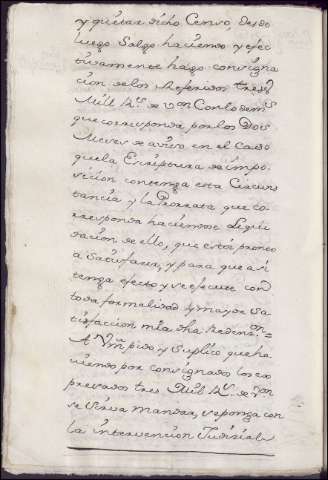 y quietar dicho Censo, desde
luego Salgo haciendo y efec
tivamente hago consigna
cion de los Referidos tres
Mill Rs. de von Con lo demas
que corresponda por los Dos
Meses de aviso en el Caso
que la Escriptura de impo
sicion contenga esta Circuns
tancia y la Prorrata que co
rresponda haciendose Liqui
dacion de ello, que estoy pronto
a Satisfacer, y para que asi
tenga efecto y se efectue con
toda formalidad y mayor Sa
tisfaccion mia dha Redenon
A Vm pido y Suplico que ha
viendo por consignados los ex
presados tres Mill Rs. de von
se sirva mandar, se ponga con
la intervencion Judicial